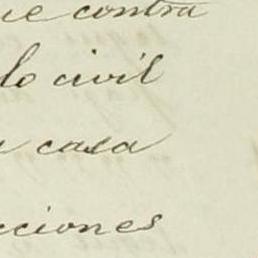 ue contra
lo civil
a casa
cciones